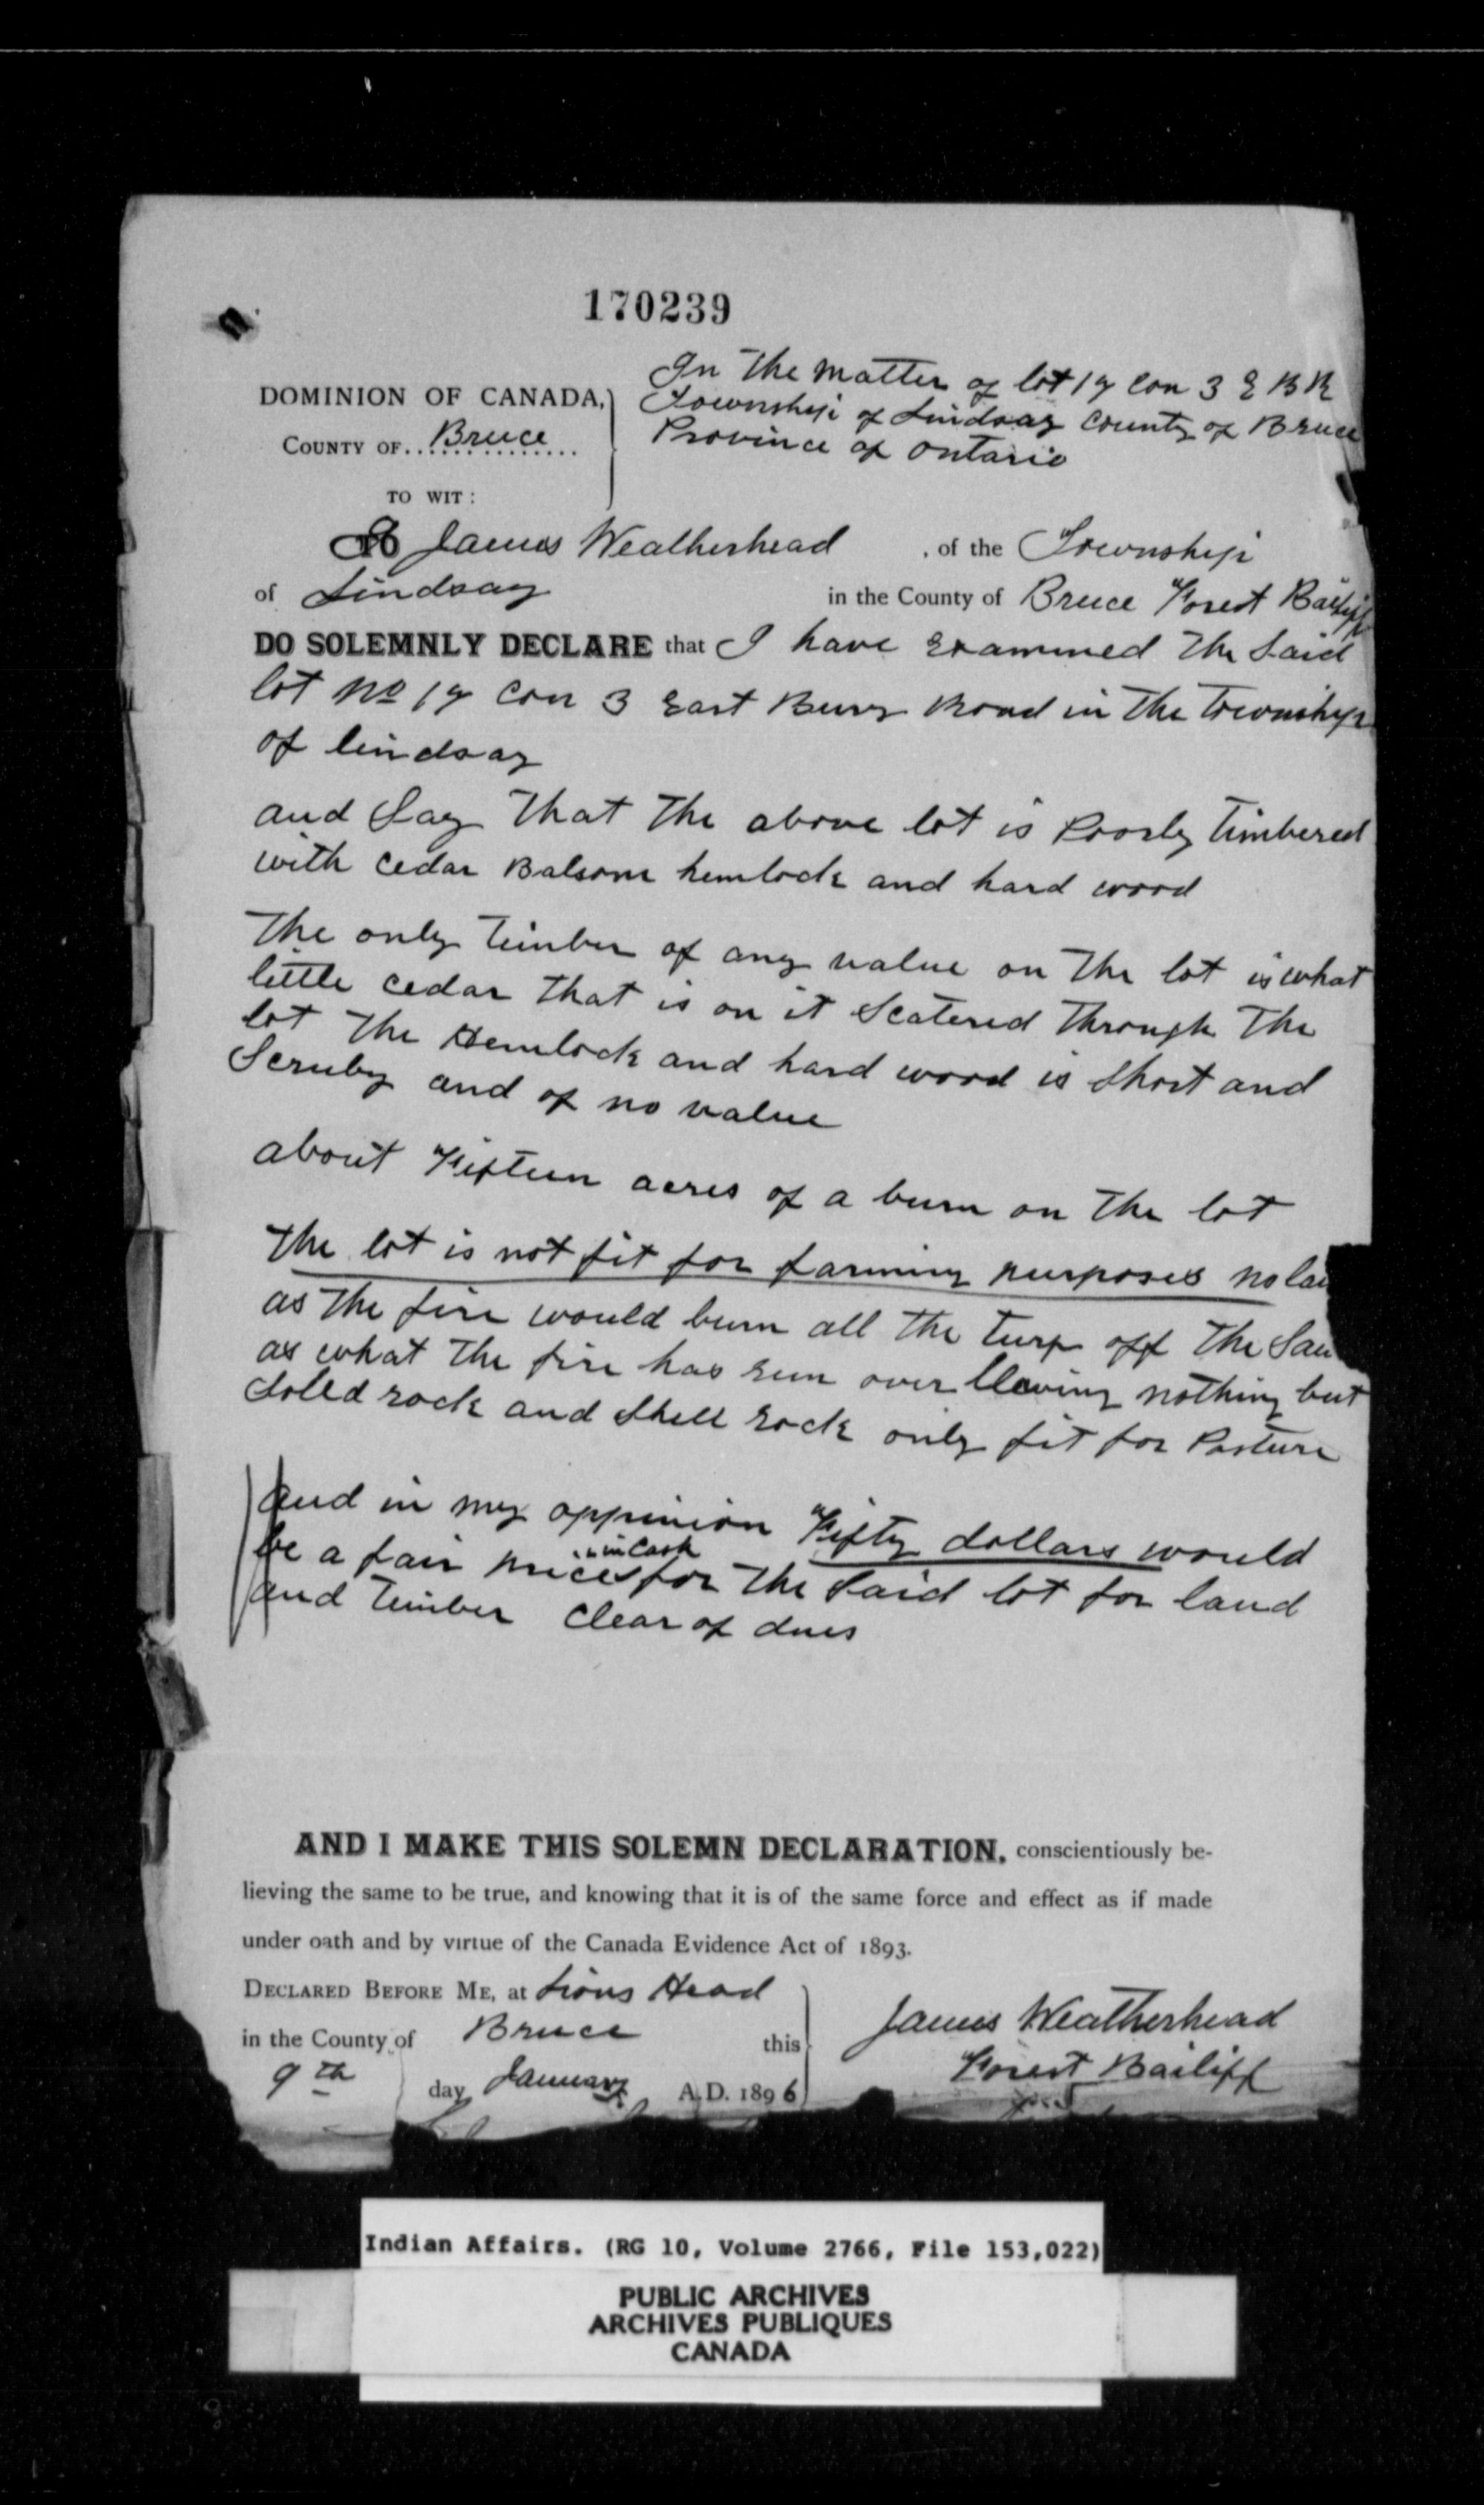 170239
DOMINION OF CANADA,
COUNTY OF Bruce
TO WIT:
In The Matter of lot 17 Con 3 E B R
Township of Lindsay County of Bruce
Province of Ontario
I James Weatherhead , of the Township
of Lindsay in the County of Bruce Forest Bailiff
DO SOLEMNLY DECLARE that I have Examined The Said
lot No 17 Con 3 East Bury Road in The Township
of lindsay
and Say That The above lot is Poorly Timbered
with cedar Balsom hemlock and hard wood
The only Timber of any value on The lot is what
little cedar That is on it Scatered Through The
lot The Hemlock and hard wood is Short and
Scruby and of no value
about Fifteen acres of a burn on The lot
The lot is not fit for farming purposes no
as The fire would burn all The Turf off The
as what The fire has run over leaving nothing but
Soled rock and Shell rock only fit for Pasture
And in my oppinion Fifty dollars would
in Cash
be a fair price for The Said lot for land
and Timber Clear of dues
AND I MAKE THIS SOLEMN DECLARATION, conscientiously be-
lieving the same to be true, and knowing that it is of the same force and effect as if made
under oath and by virtue of the Canada Evidence Act of 1893.
DECLARED BEFORE ME, at Lions Head
in the County of Bruce this
9th day January A.D. 1896
James Weatherhead
Forest Bailiff
Indian Affairs. (RG 10, Volume 2766, File 153,022)
PUBLIC ARCHIVES
ARCHIVES PUBLIQUES
CANADA